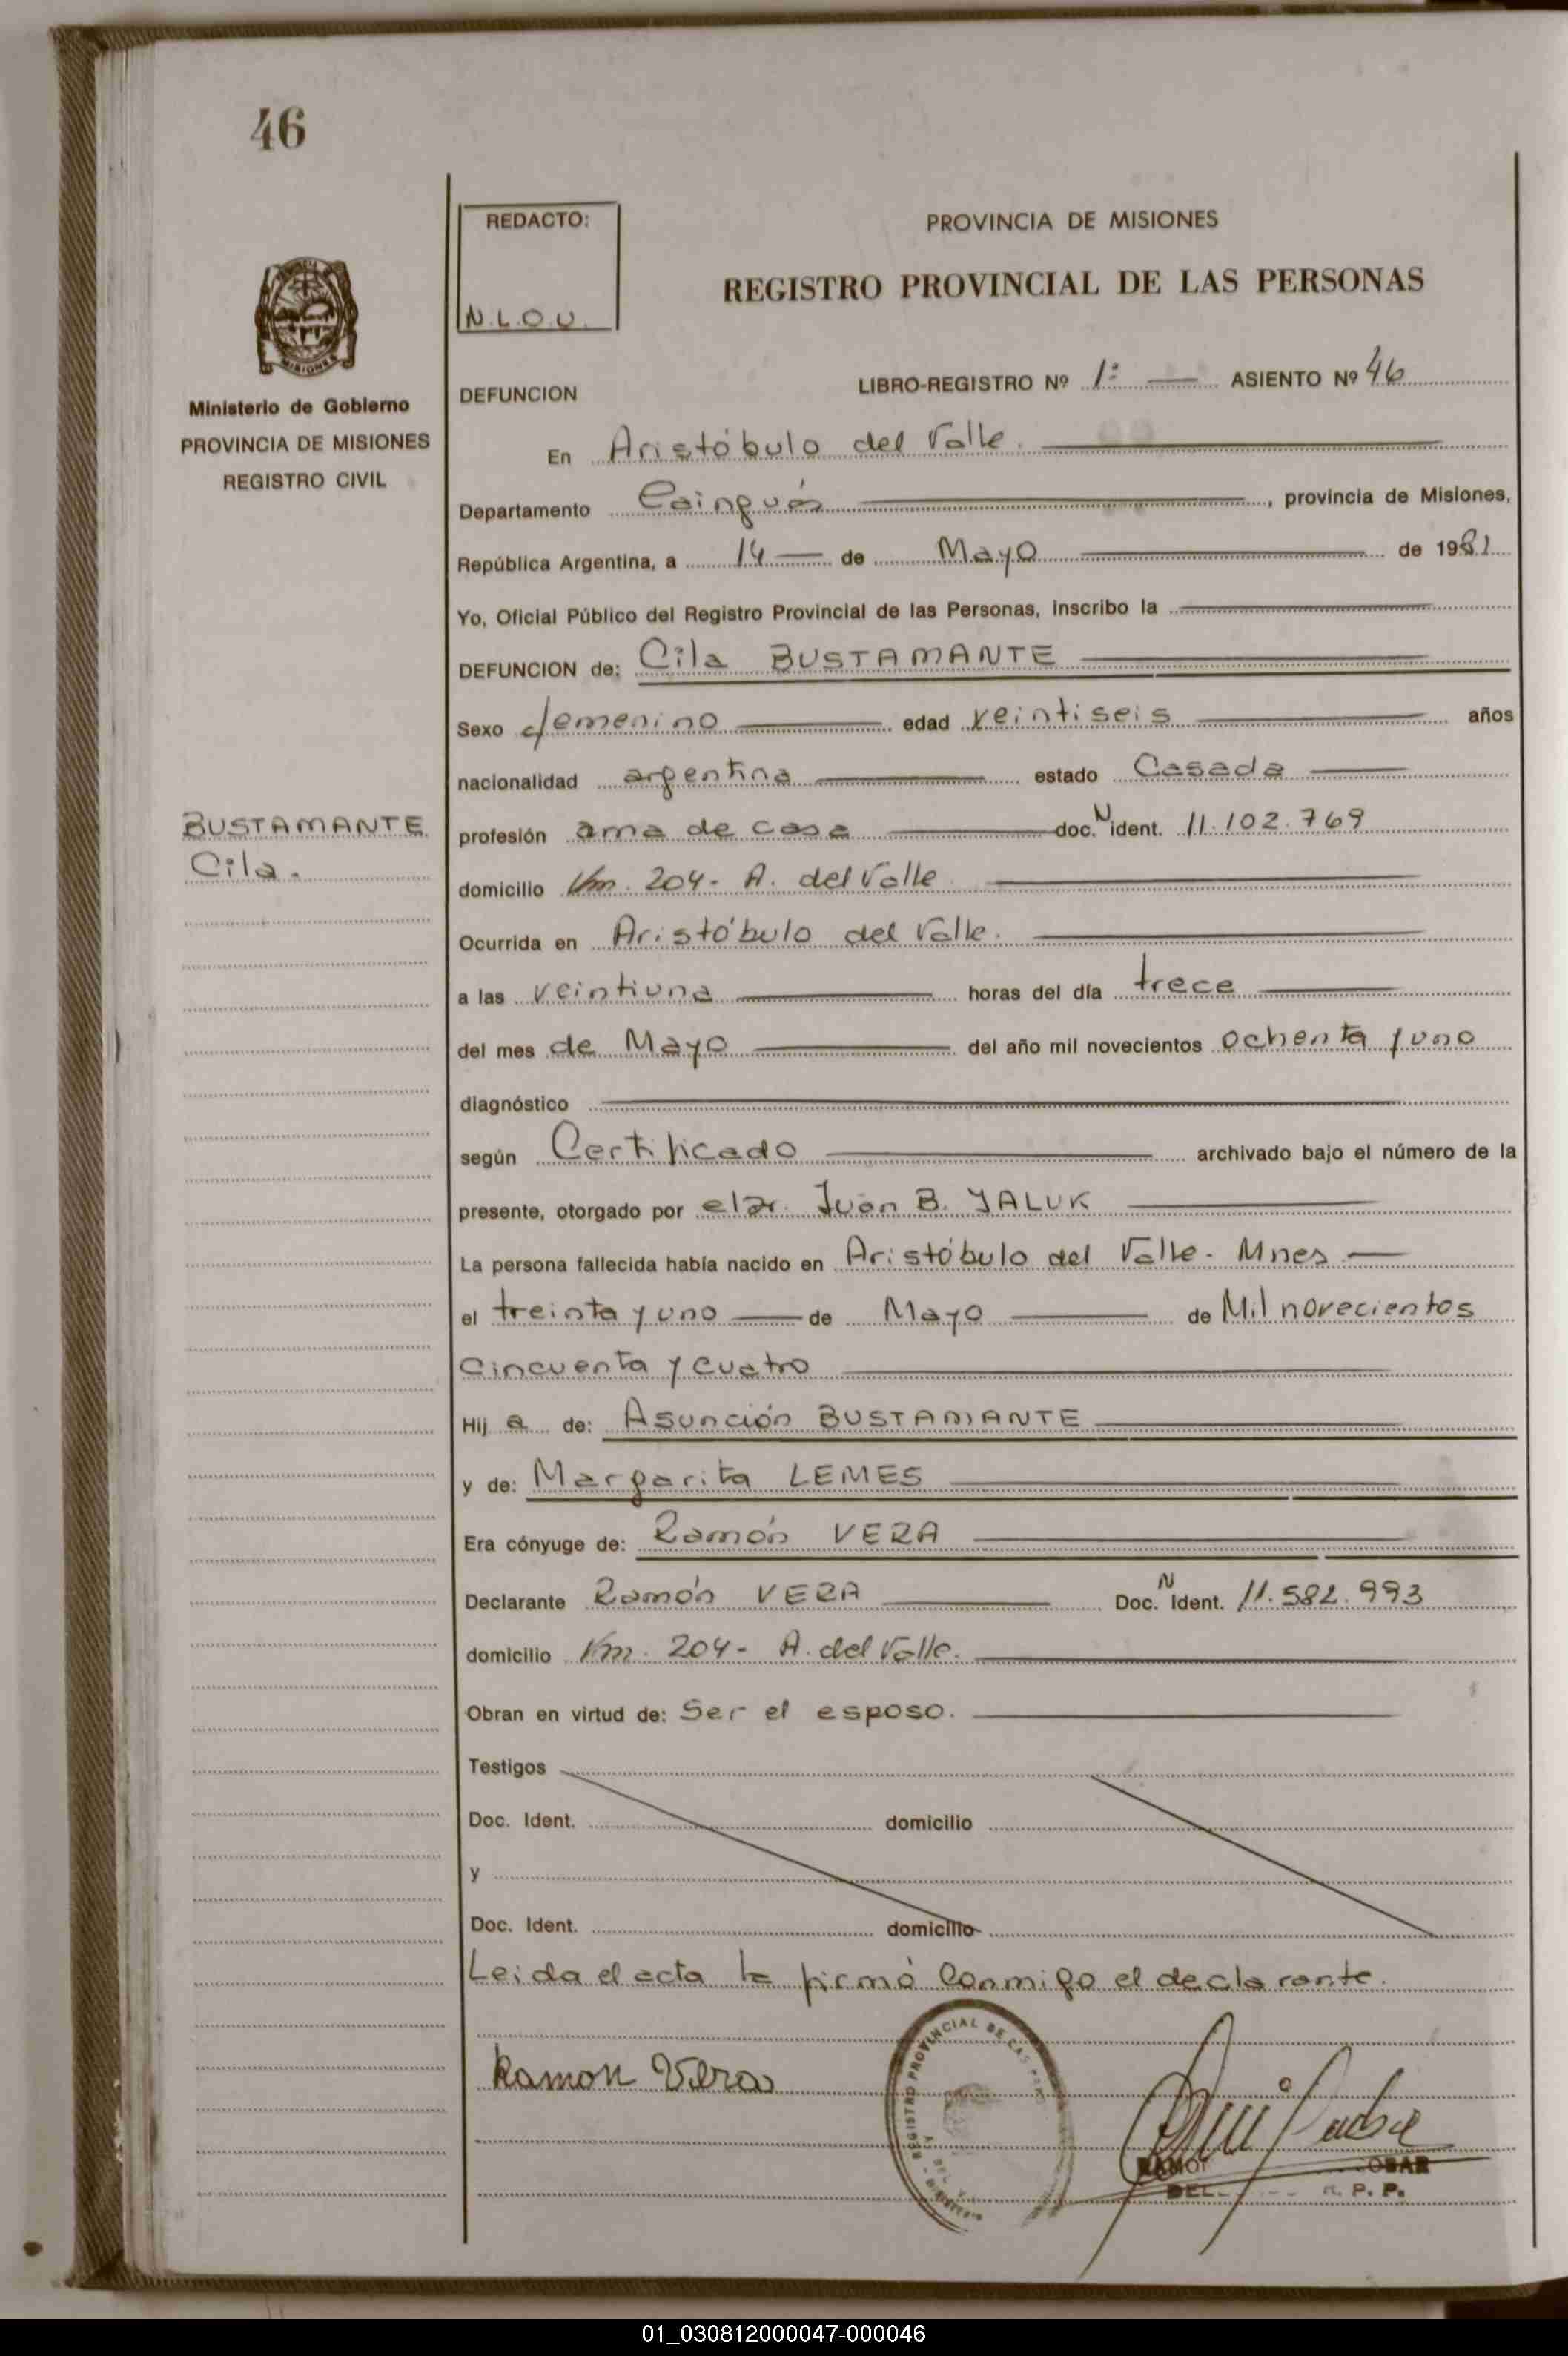 46
REDACTO:
N.L.O.U.
PROVINCIA DE MISIONES
REGISTRO PROVINCIAL DE LAS PERSONAS
MISIONES
Ministerio de Gobierno
PROVINCIA DE MISIONES
REGISTRO CIVIL
DEFUNCION LIBRO-REGISTRO Nº 1º ASIENTO Nº 46
En Aristóbulo del Valle.
Departamento Cainguás, provincia de Misiones,
República Argentina, a 14 de Mayo de 1981
Yo, Oficial Público del Registro Provincial de las Personas, inscribo la
DEFUNCION de: Cila BUSTAMANTE
Sexo femenino edad veintiseis años
nacionalidad argentina estado Casada
BUSTAMANTE
Cila.
profesión ama de casa doc. N ident. 11.102.769
domicilio Km. 204- A. del Valle
Ocurrida en Aristóbulo del Valle.
a las veintiuna horas del día trece
del mes de Mayo del año mil novecientos ochenta y uno
diagnóstico
según Certificado archivado bajo el número de la
presente, otorgado por el Dr. Juan B. YALUK
La persona fallecida había nacido en Aristóbulo del Valle- Mnes
el treinta y uno de Mayo de Mil novecientos
Cincuenta y cuatro
Hij a de: Asunción BUSTAMANTE
y de: Margarita LEMES
Era cónyuge de: Ramón VERA
Declarante Ramón VERA Doc. N Ident. 11.582.993
domicilio Km. 204- A. del Valle.
Obran en virtud de: Ser el esposo.
Testigos
Doc. Ident. domicilio
y
Doc. Ident. domicilio
Leida el acta la firmó Conmigo el declarante.
Ramon Vera
REGISTRO PROVINCIAL DE LAS
R. P. P.
01_030812000047-000046